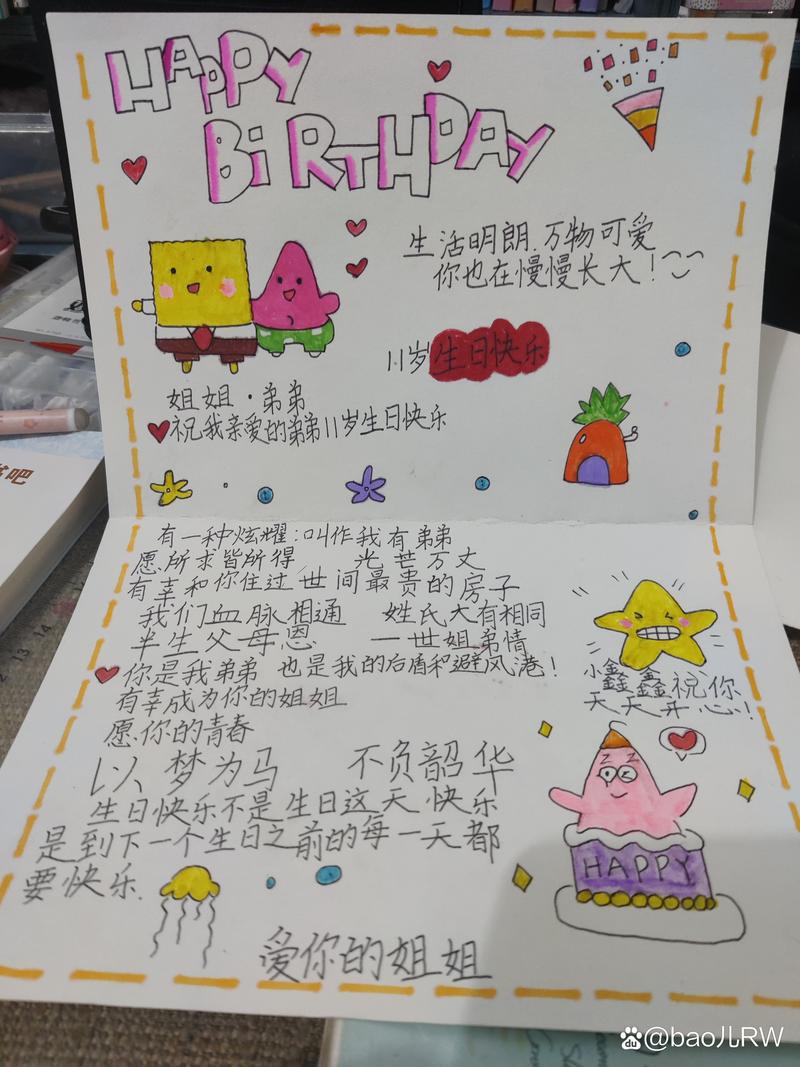 HAPPY
BIRTHDAY
生活明朗.万物可爱
你也在慢慢长大!
11岁生日快乐
姐姐·弟弟
祝我亲爱的弟弟11岁生日快乐
有一种炫耀:叫作我有弟弟
愿所求皆所得 光芒万丈
有幸和你住过世间最贵的房子
我们血脉相通 姓氏大有相同
半生父母恩 一世姐弟情
你是我弟弟 也是我的后盾和避风港!
有幸成为你的姐姐
愿你的青春
以梦为马 不负韶华
生日快乐不是生日这天快乐
是到下一个生日之前的每一天都
要快乐.
爱你的姐姐
小鑫鑫祝你
天天开心!
HAPPY
吧
@bao儿RW